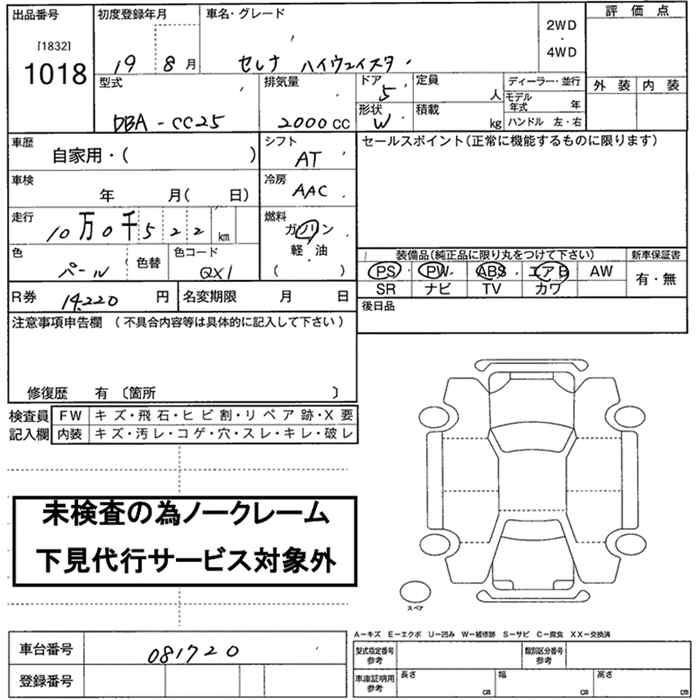 出品番号 初度登録年月 車名・グレード 2WD・4WD 評価点
[1832]
1018
19 8月
セレナ ハイウェイスター
外装 内装
型式 排気量 ドア 定員 人 ディーラー・並行
5
DBA-CC25
2000cc
形状 積載 kg モデル年式 年
W
ハンドル 左・右
車歴 自家用・( )
シフト AT
セールスポイント(正常に機能するものに限ります)
車検 年 月( 日)
冷房 AAC
走行 10万0千522km
燃料 ガソリン・軽油 ( )
色 パール 色替 色コード QX1
装備品(純正品に限り丸をつけて下さい) 新車保証書
PS PW ABS エアB AW 有・無
SR ナビ TV カワ
R券 14,220円 名変期限 月 日
後日品
注意事項申告欄(不具合内容等は具体的に記入して下さい)
修復歴 有 〔箇所 〕
検査員記入欄 FW キズ・飛石・ヒビ割・リペア跡・X要
内装 キズ・汚レ・コゲ・穴・スレ・キレ・破レ
未検査の為ノークレーム
下見代行サービス対象外
スペア
A−キズ E−エクボ U−凹み W−補修跡 S−サビ C−腐食 XX−交換済
車台番号 081720
型式指定番号 参考 類別区分番号 参考
登録番号
車庫証明用 参考 長さ cm 幅 cm 高さ cm